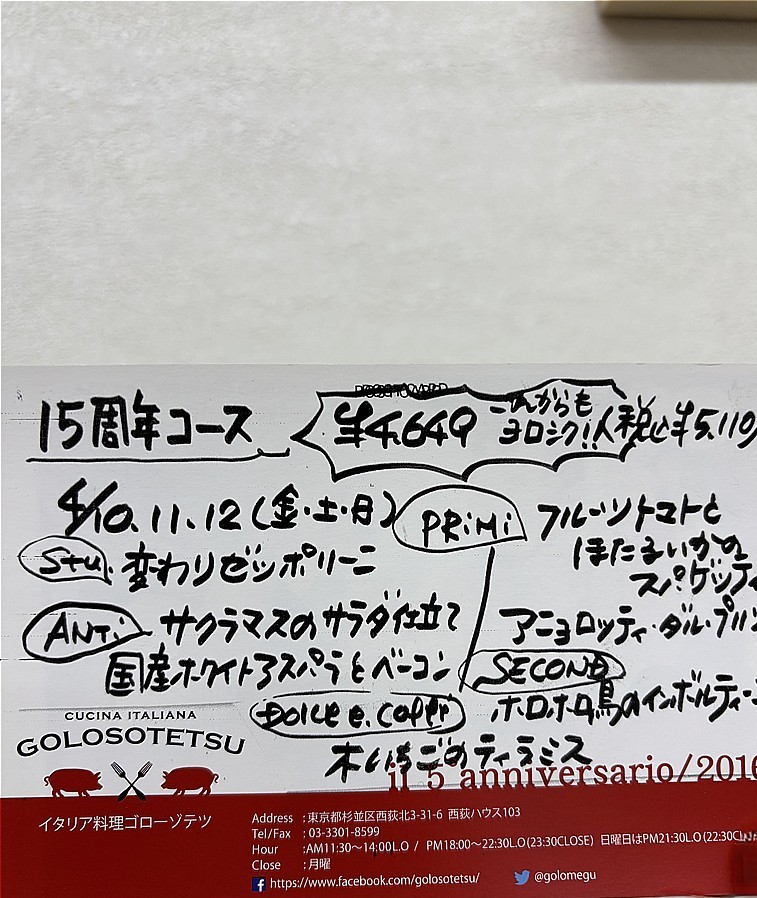 15周年コース
¥4,649
これからも
ヨロシク!!
税込¥5,110
4/10.11.12(金・土・日)
PRiMi
フルーツトマトと
ほたるいかの
スパゲッティ
Stu.
変わりゼッポリーニ
ANTi
サクラマスのサラダ仕立て
国産ホワイトアスパラとベーコン
アニョロッティ・ダル・プリン
SECOND
ホロホロ鳥のインボルティーニ
Dolce e. Caffè
木いちごのティラミス
CUCINA ITALIANA
GOLOSOTETSU
イタリア料理ゴローゾテツ
il 5 anniversario/2016
Address :東京都杉並区西荻北3-31-6 西荻ハウス103
Tel/Fax : 03-3301-8599
Hour :AM11:30〜14:00L.O / PM18:00〜22:30L.O(23:30CLOSE) 日曜日はPM21:30L.O(22:30CL
Close :月曜
https://www.facebook.com/golosotetsu/
@golomegu